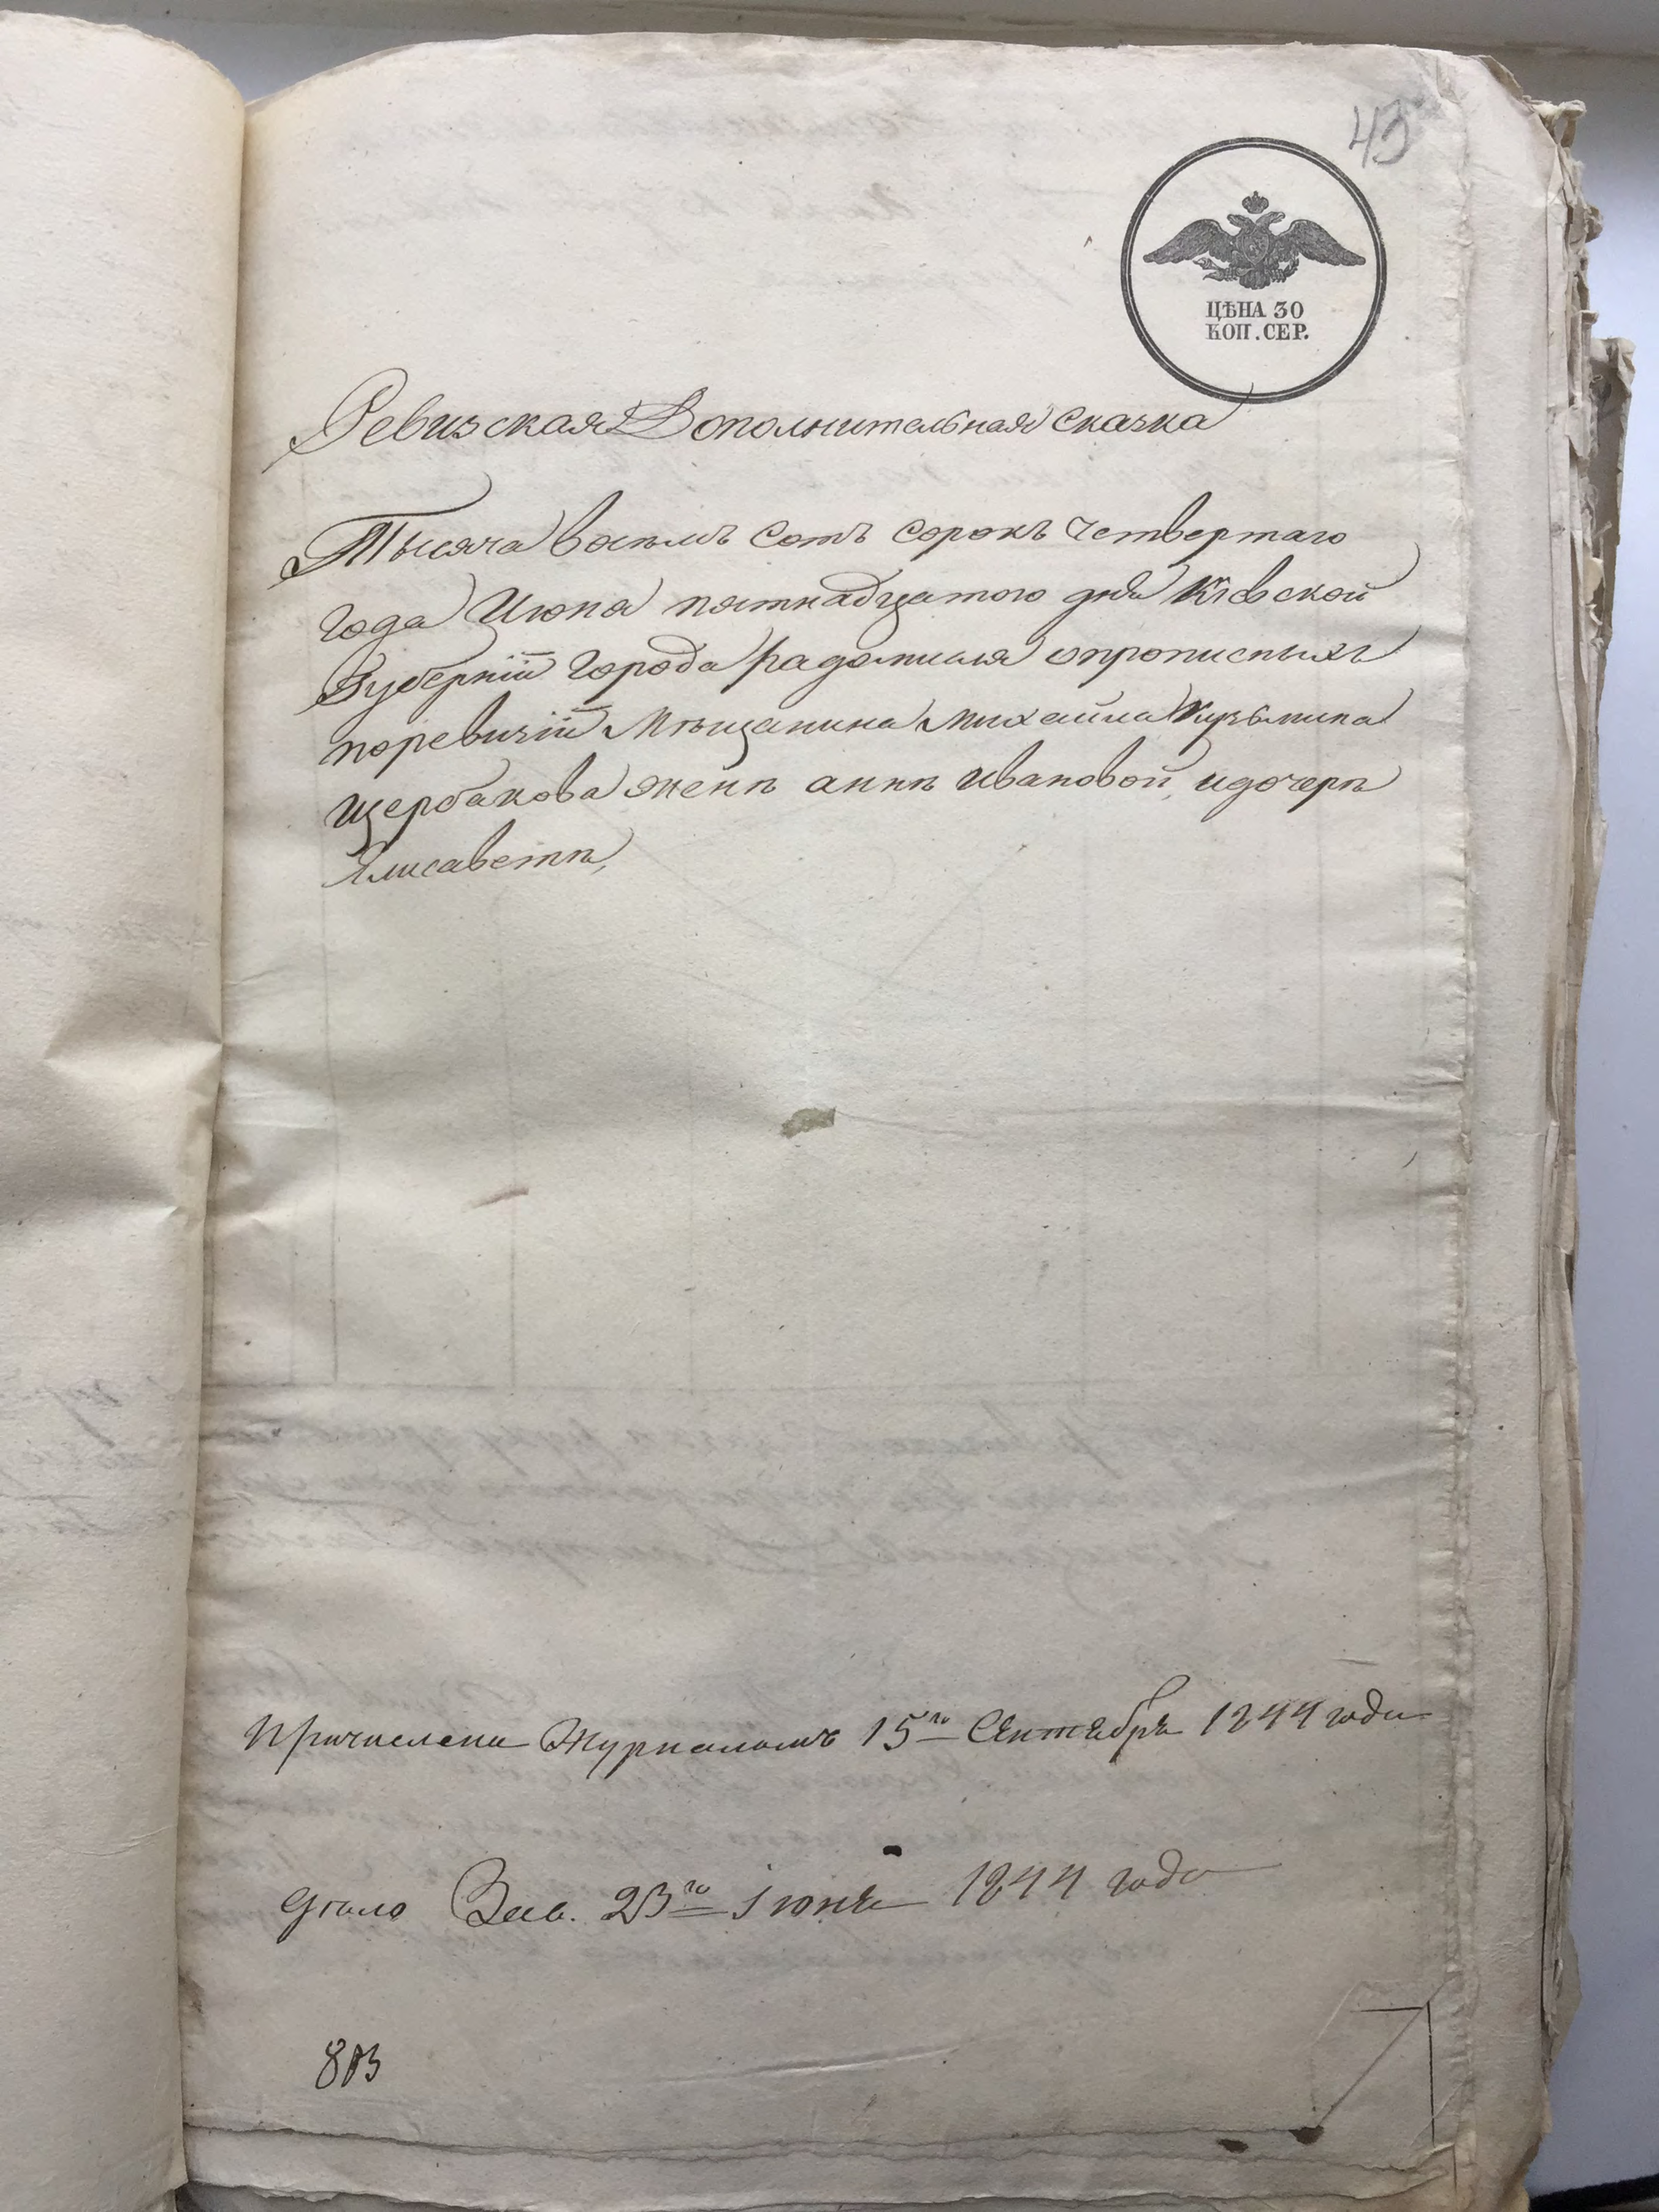 43
ЦѢНА 30
КОП. СЕР.
Ревизская Дополнительная сказка
Тысяча восемъ сотъ сорокъ четвертаго
года Июня пятнадцатого дня Кіевской
Губерніи города радомысля опрописныхъ
поревизіи Мѣщанина Михайла Кузьмина
щербакова женѣ аннѣ ивановой, идочерѣ
Элисаветѣ,
Причислены Журналомъ 15го Сентября 1844 года
Дѣло 23го іюня 1844 года
803